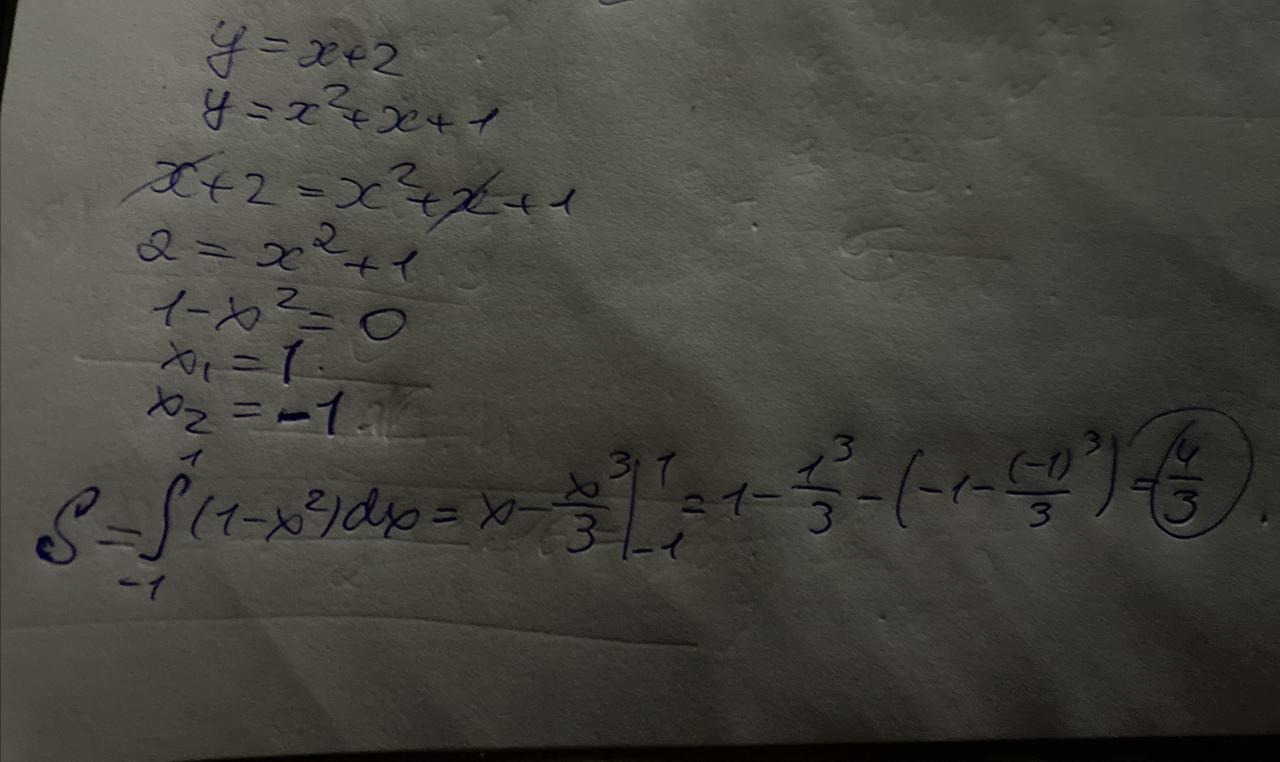 y = x+2
y = x²+x+1
x+2 = x²+x+1
2 = x²+1
1-x² = 0
x₁ = 1.
x₂ = -1.
S = ∫₋₁¹ (1-x²)dx = x - x³/3 |₋₁¹ = 1 - 1³/3 - (-1 - (-1)³/3) = 4/3.